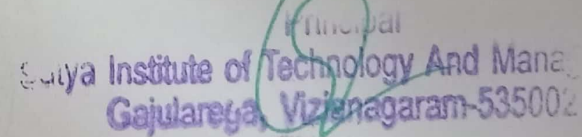 Principal
Satya Institute of Technology And Mana
Gajularega, Vizianagaram-535002